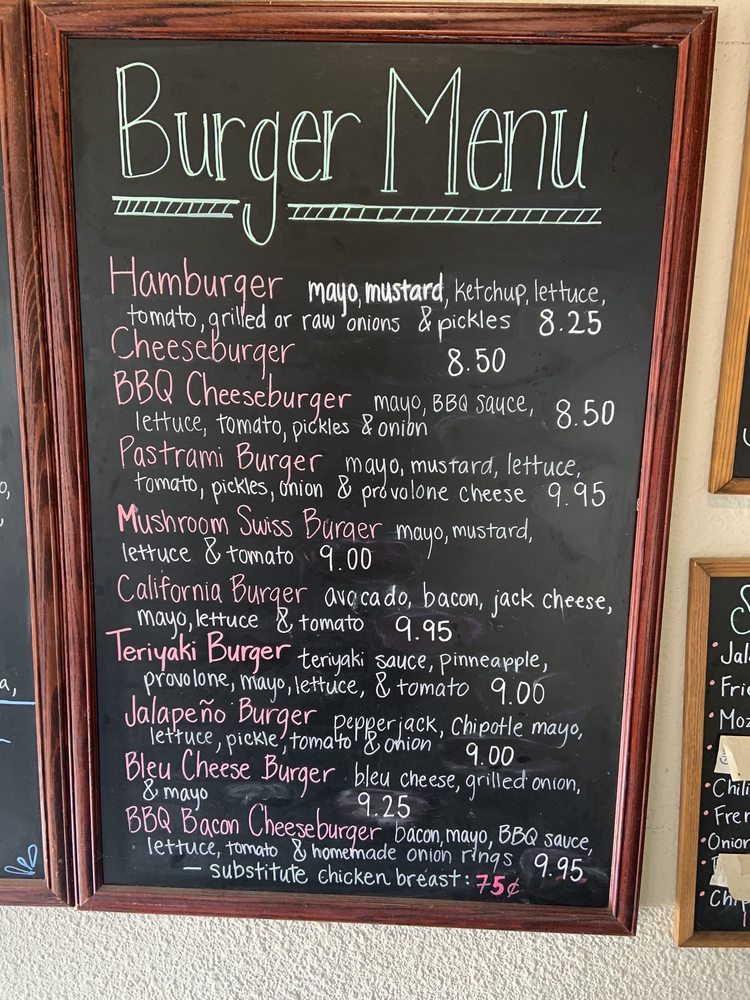 Burger Menu
Hamburger mayo, mustard, ketchup, lettuce,
tomato, grilled or raw onions & pickles 8.25
Cheeseburger 8.50
BBQ Cheeseburger mayo, BBQ sauce,
lettuce, tomato, pickles & onion 8.50
Pastrami Burger mayo, mustard, lettuce,
tomato, pickles, onion & provolone cheese 9.95
Mushroom Swiss Burger mayo, mustard,
lettuce & tomato 9.00
California Burger avocado, bacon, jack cheese,
mayo, lettuce & tomato 9.95
Teriyaki Burger teriyaki sauce, pinneapple,
provolone, mayo, lettuce, & tomato 9.00
Jalapeño Burger pepperjack, Chipotle mayo,
lettuce, pickle, tomato & onion 9.00
Bleu Cheese Burger bleu cheese, grilled onion,
& mayo 9.25
BBQ Bacon Cheeseburger bacon, mayo, BBQ sauce,
lettuce, tomato & homemade onion rings 9.95
— substitute chicken breast: 75¢